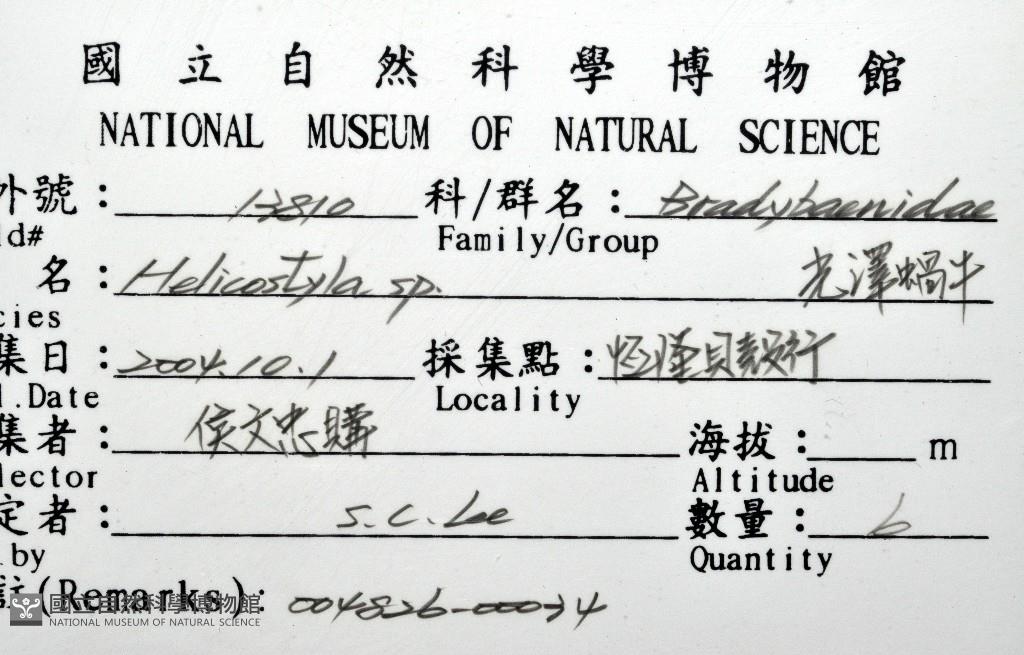 國立自然科學博物館
NATIONAL MUSEUM OF NATURAL SCIENCE
外號： 13810 科/群名： Bradybaenidae
ld# Family/Group
名： Helicostyla sp. 光澤蝸牛
cies
集日： 2004.10.1 採集點： 恆隆貝殼行
l.Date Locality
集者： 侯文忠購 海拔： m
lector Altitude
定者： S.C.Lee 數量： 6
.by Quantity
註(Remarks): 004826-00034
國立自然科學博物館
NATIONAL MUSEUM OF NATURAL SCIENCE